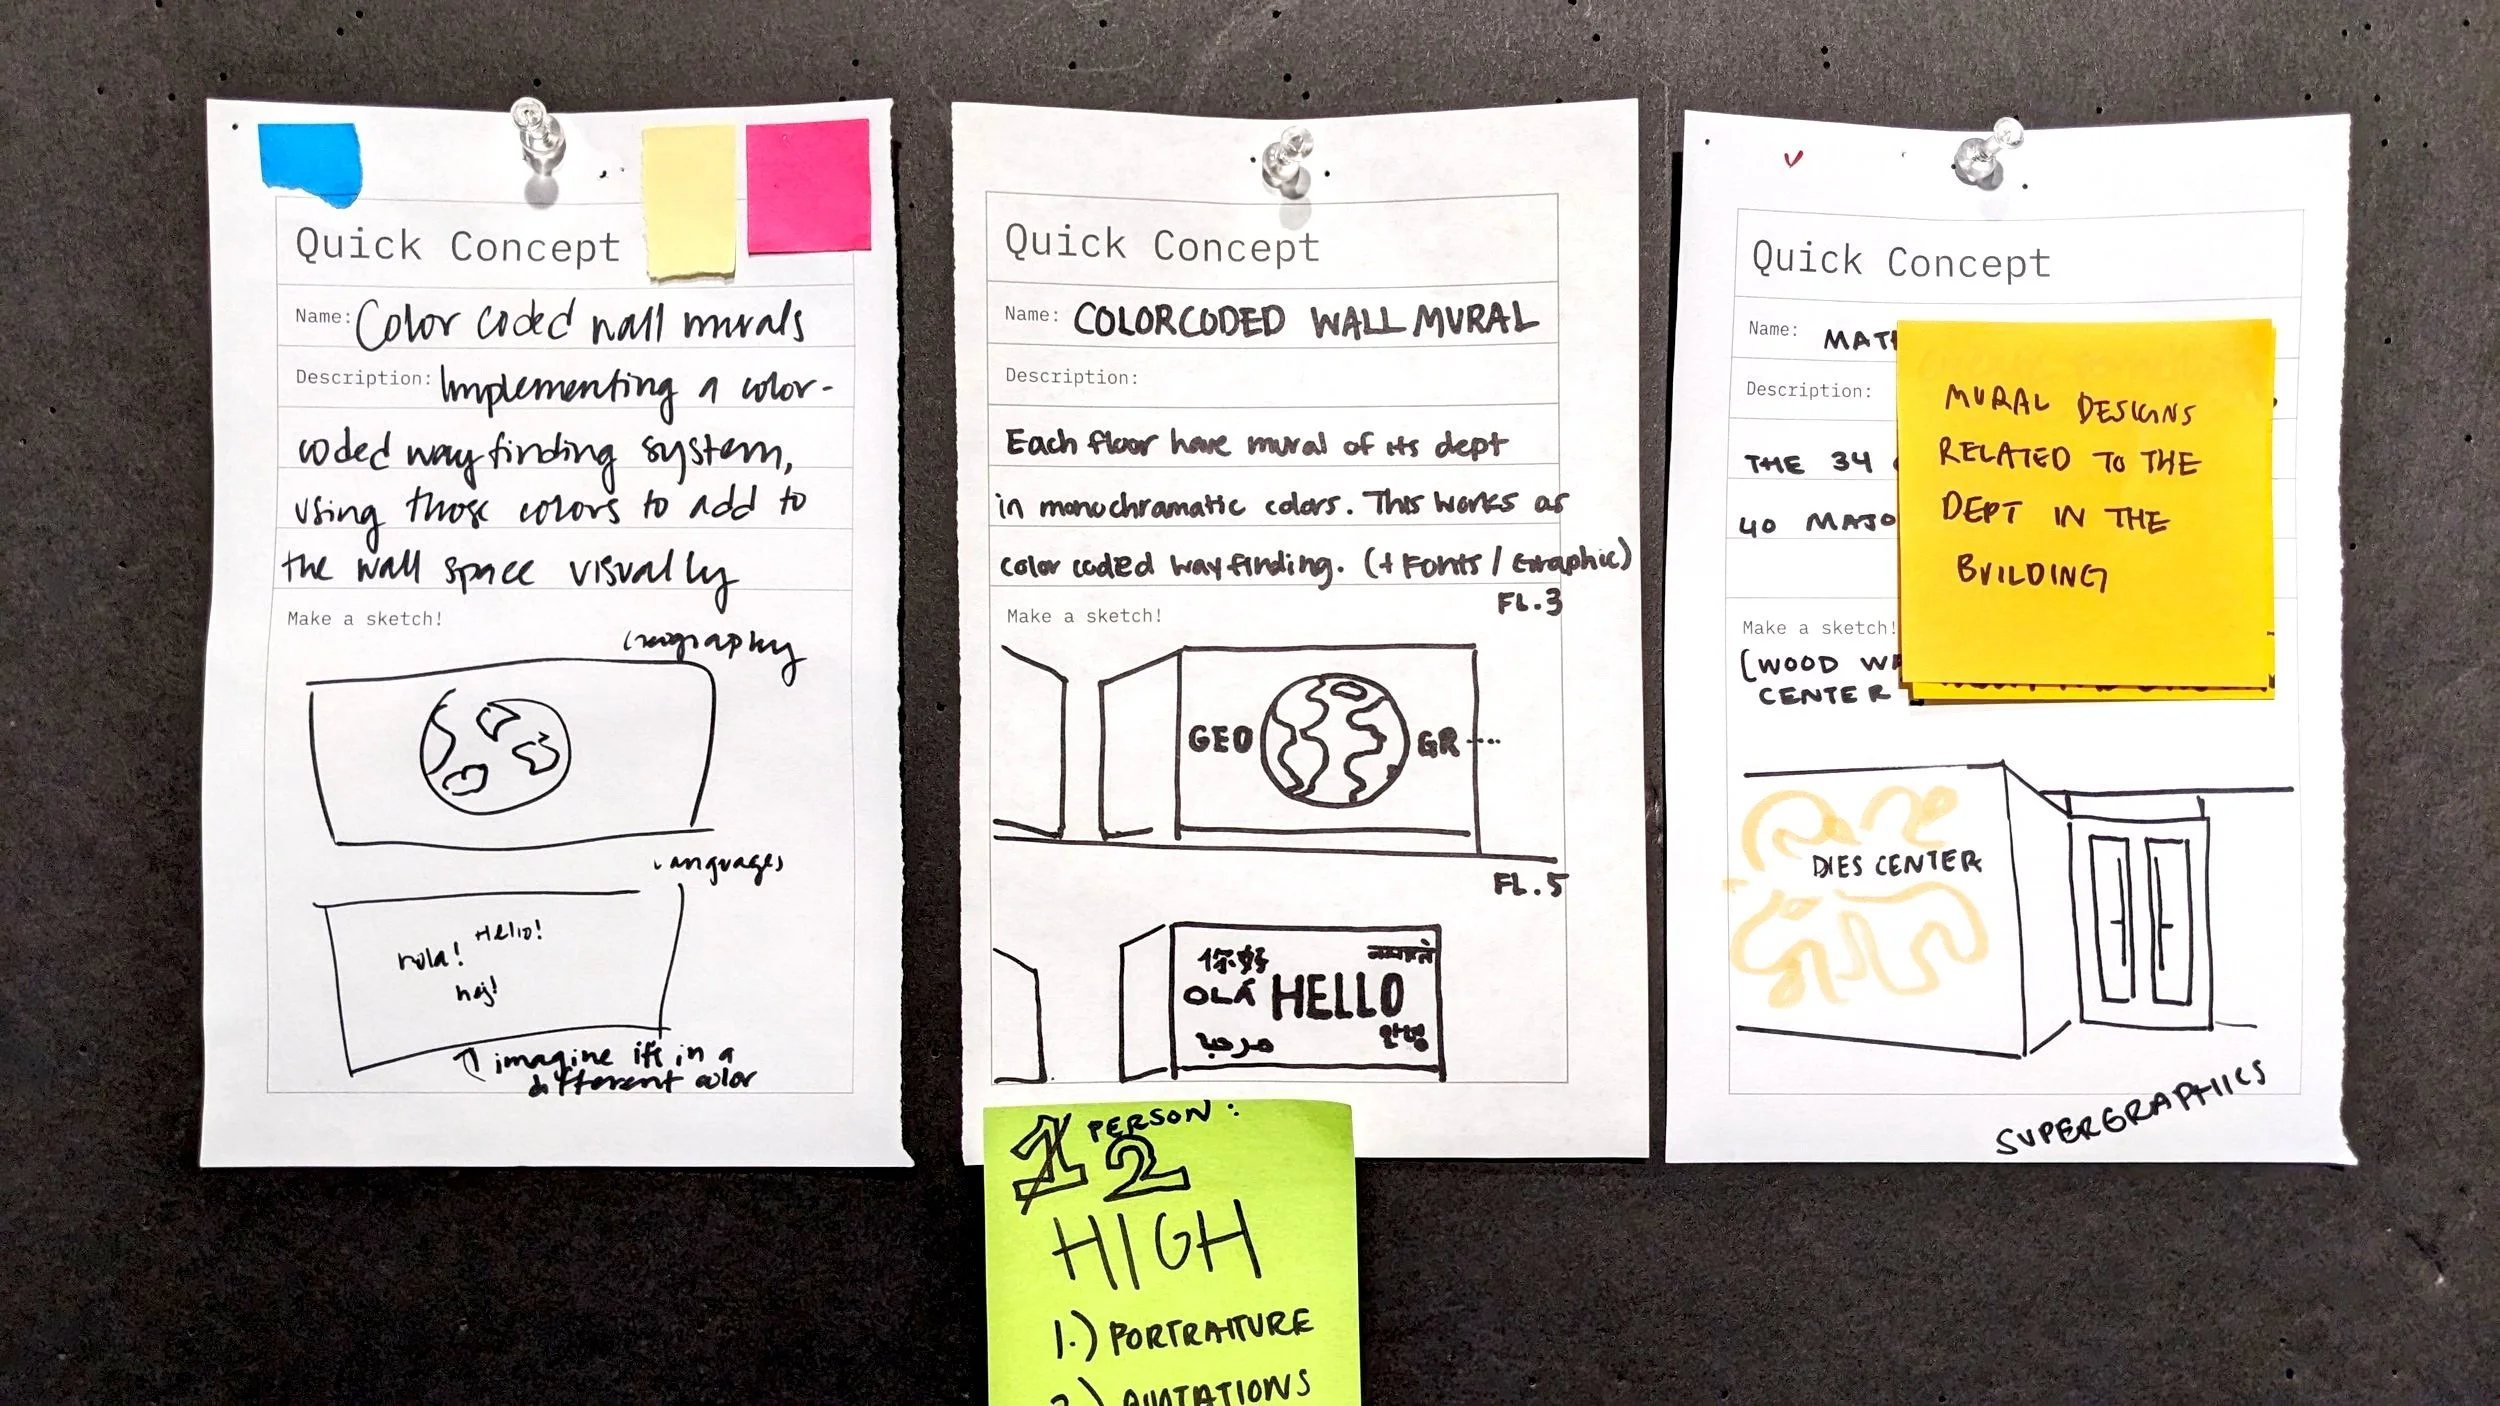 Quick Concept
Name: Color coded wall murals
Description: Implementing a color-
coded wayfinding system,
using those colors to add to
the wall space visually
Make a sketch!
Geography
Languages
Hello!
Hola!
hej!
↑ imagine it's in a
different color
Quick Concept
Name: COLORCODED WALL MURAL
Description:
Each floor have mural of its dept
in monochramatic colors. This works as
color coded wayfinding. (+ Fonts / Graphic)
FL.3
Make a sketch!
GEO GR....
FL.5
你好 नमस्ते
OLÁ HELLO
مرحبا 안녕
PERSON:
1 2
HIGH
1.) PORTRAITURE
2.) QUOTATIONS
Quick Concept
Name: MATH
Description:
THE 34
40 MAJO
Make a sketch!
(WOOD WA
CENTER
MURAL DESIGNS
RELATED TO THE
DEPT IN THE
BUILDING
DIES CENTER
SUPERGRAPHICS